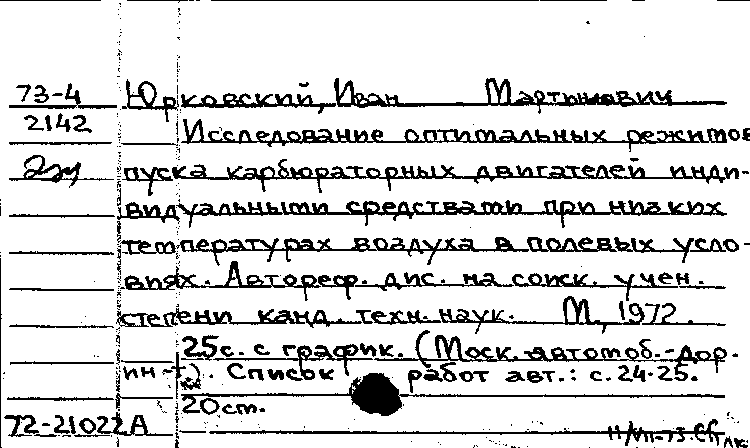 73-4 Юрковский, Иван Мартынович
2142 Исследование оптимальных режимов
пуска карбюраторных двигателей инди-
видуальными средствами при низких
температурах воздуха в полевых усло-
виях. Автореф. дис. на соиск. учен.
степени канд. техн. наук. М., 1972.
25с. с график. (Моск. автомоб.-дор.
ин-т). Список работ авт.: с. 24-25.
20см.
72-21022А